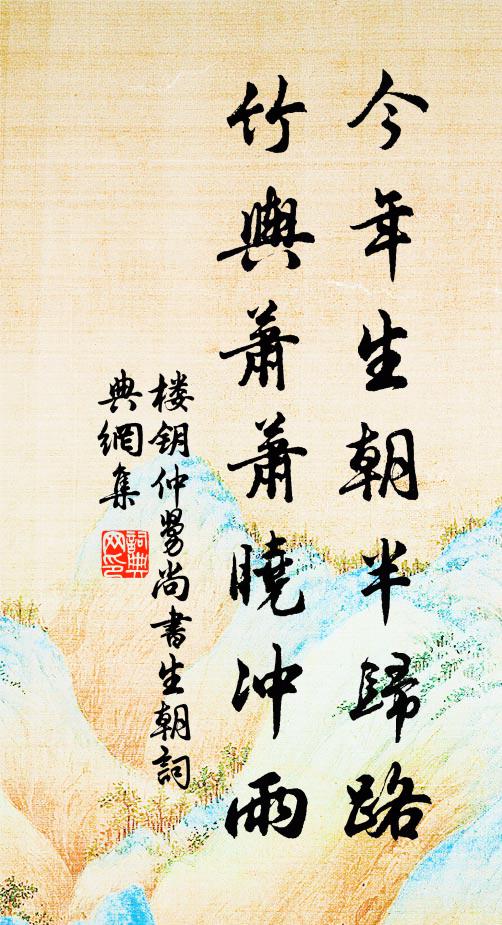 今年生朝半歸路
竹輿蕭蕭曉沖雨
楼钥仲舅尚書生朝詞
典網集
詞典
网印